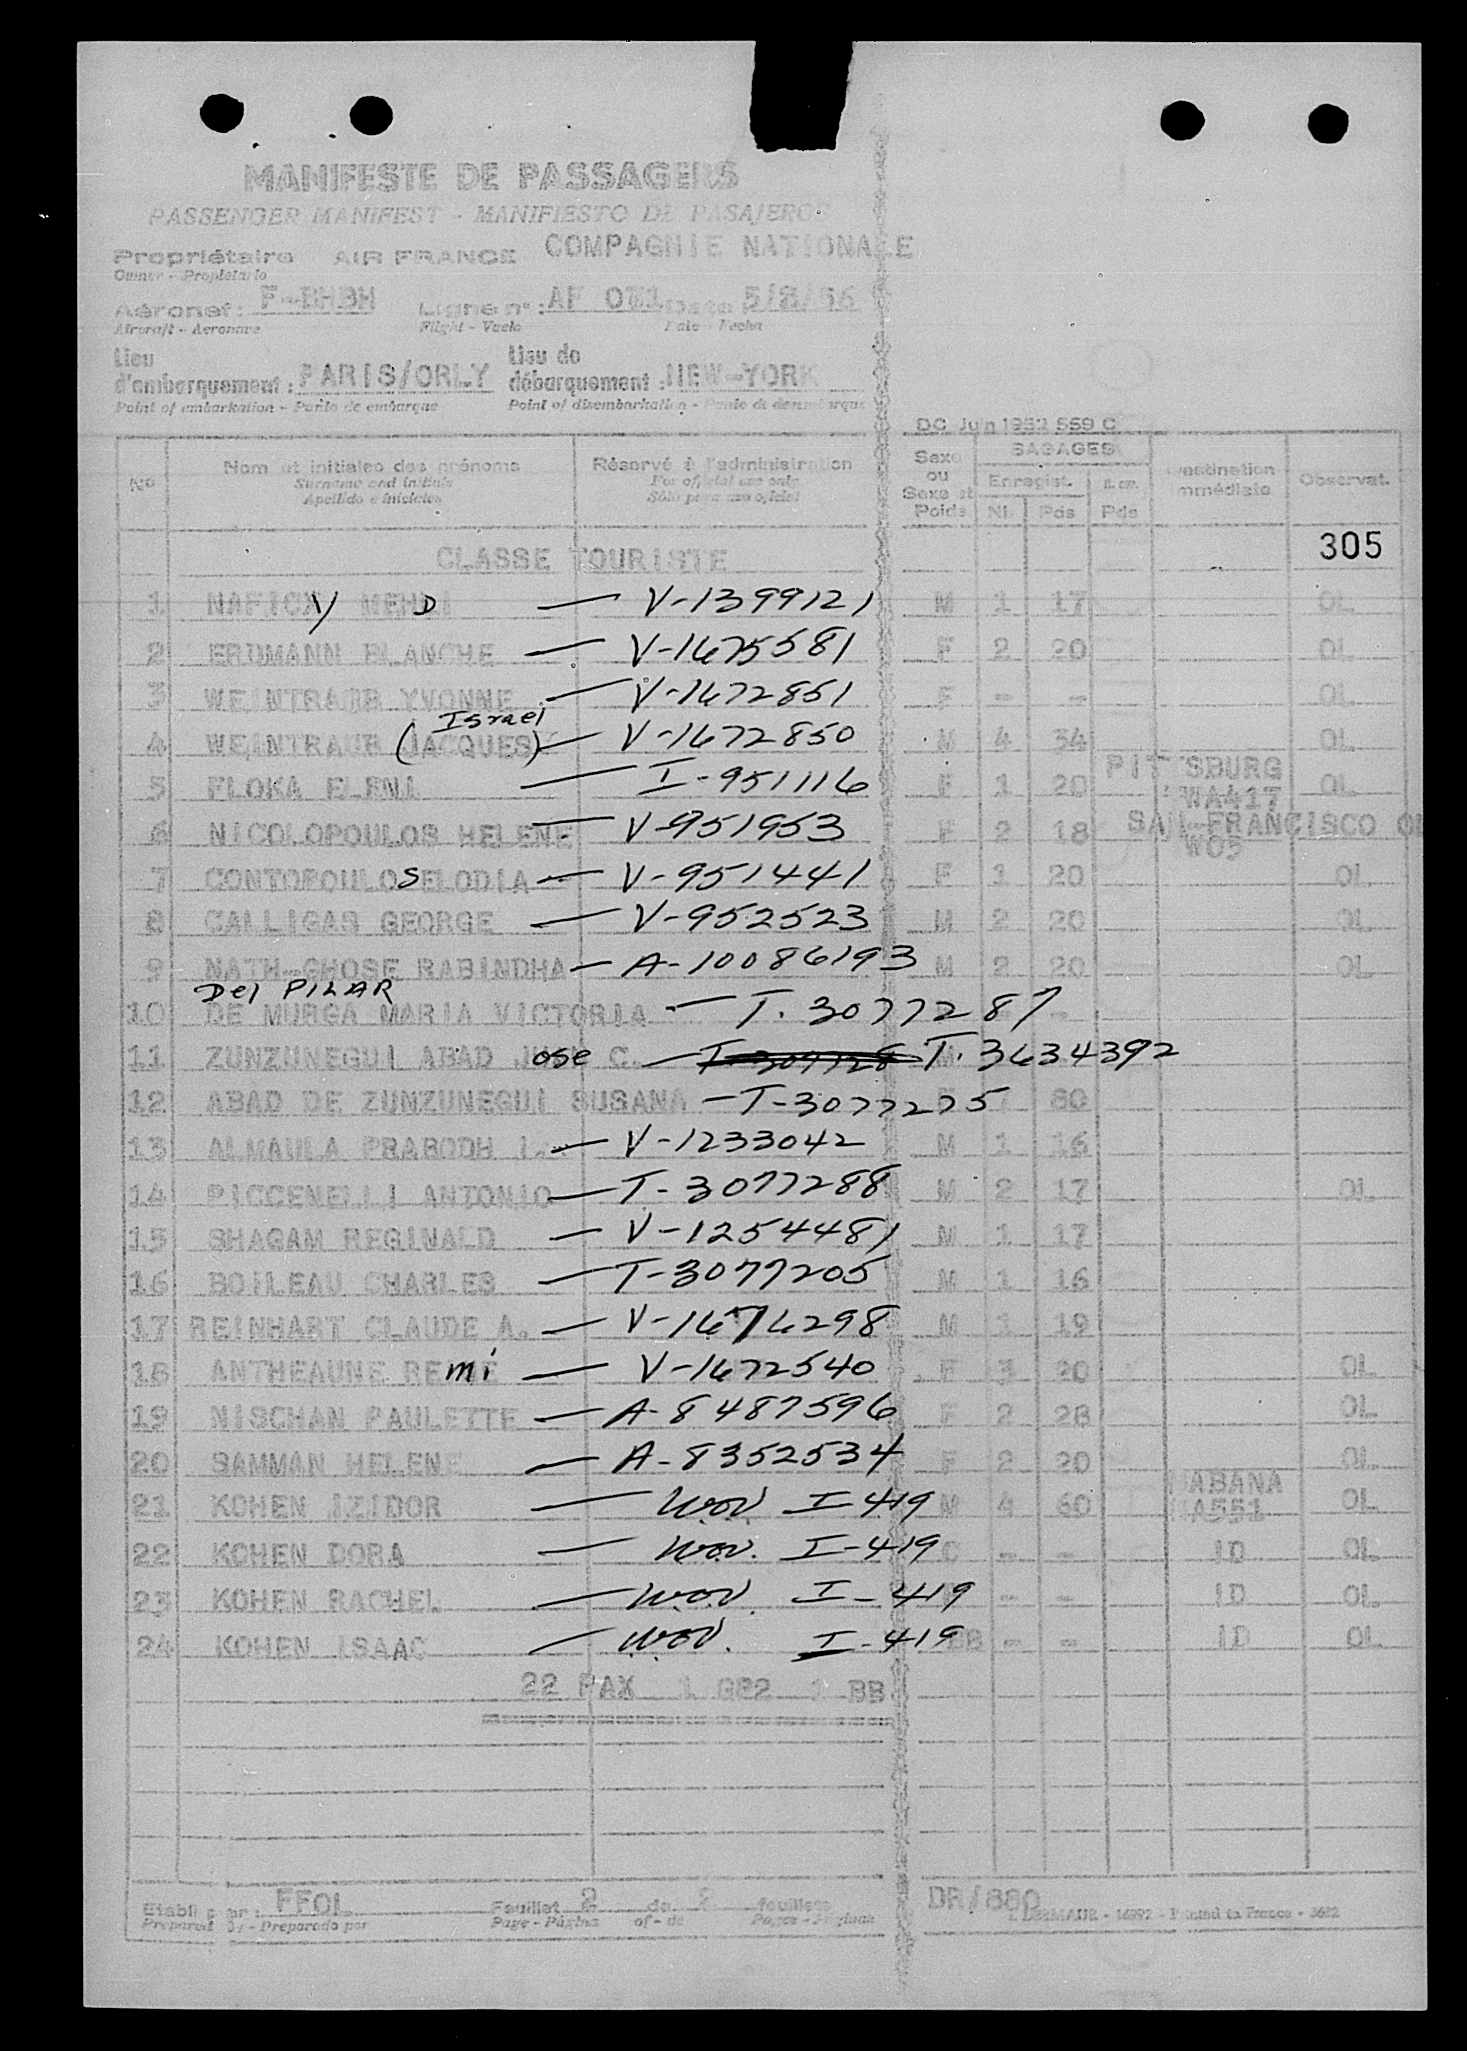 MANIFESTE DE PASSAGERS
PASSENGER MANIFEST - MANIFIESTO DE PASAJEROS
Propriétaire AIR FRANCE COMPAGNIE NATIONALE
Owner - Propietario
Aéronef : F-BHBH Ligne n° : AF 071 Date 5/8/56
Aircraft - Aeronave Flight - Vuelo Date - Fecha
Lieu d'embarquement : PARIS/ORLY Lieu de débarquement : NEW-YORK
Point of embarkation - Punto de embarque Point of disembarkation - Punto de desembarque
DC Juin 1952 559 C
No Nom et initiales des prénoms Réservé à l'administration Sexe ou Sexe et Poids BAGAGES Destination immédiate Observat.
Surname and initials For official use only Enregist.
Apellido e iniciales Sólo para uso oficial N. Pds Pds
305
CLASSE TOURISTE
1 NAFICY MEHDI — V-1399121 M 1 17 OL
2 ERDMANN BLANCHE — V-1675581 F 2 20 OL
3 WEINTRAUB YVONNE — V-1672851 F - - OL
Israel
4 WEINTRAUB (JACQUES) — V-1672850 M 4 34 OL
5 FLOKA ELENI — I-951116 F 1 20 PITTSBURG WA417 OL
6 NICOLOPOULOS HELENE — V-951953 F 2 18 SAN-FRANCISCO W05 OL
7 CONTOPOULOS ELODIA — V-951441 F 1 20 OL
8 CALLIGAS GEORGE — V-952523 M 2 20 OL
9 NATH-GHOSE RABINDHA — A-10086193 M 2 20 OL
Del PILAR
10 DE MURGA MARIA VICTORIA — T. 3077287 -
11 ZUNZUNEGUI ABAD Jose C. — T-307728 T. 3634392
12 ABAD DE ZUNZUNEGUI SUSANA — T-3077275 80
13 ALMAULA PRABODH I. — V-1233042 M 1 16
14 PICCENELLI ANTONIO — T-3077288 M 2 17 OL
15 SHAGAM REGINALD — V-1254481 M 1 17
16 BOILEAU CHARLES — T-3077205 M 1 16
17 REINHART CLAUDE A. — V-1676298 M 1 19
18 ANTHEAUNE REmiE — V-1672540 F 3 20 OL
19 NISCHAN PAULETTE — A-8487596 F 2 28 OL
20 SAMMAN HELENE — A-8352534 F 2 20 OL
21 KOHEN IZIDOR — WOV I-419 M 4 60 HABANA NA551 OL
22 KOHEN DORA — WOV. I-419 C - - ID OL
23 KOHEN RACHEL — WOV. I-419 - - ID OL
24 KOHEN ISAAC — WOV. I-419 BB - - ID OL
22 PAX 1 GB2 1 BB
Etabli par : FFOL Feuillet 2 de 2 feuillets DR/880
Prepared by - Preparado por Page - Página of - de Pages - Páginas Printed in France